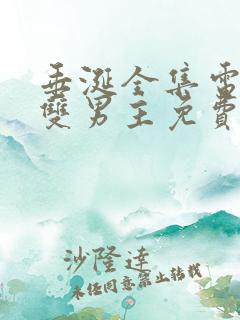 垂涎全集電
雙男主免費
沙隆達
未经同意禁止转载